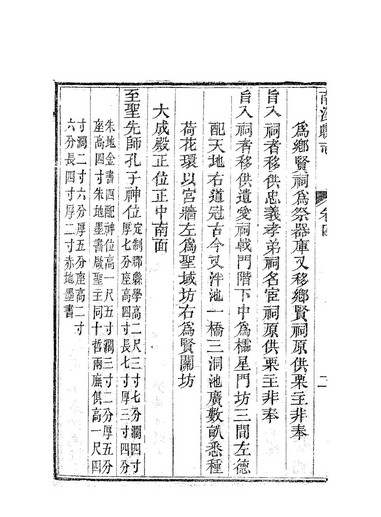 為鄉賢祠為祭器庫又移鄉賢祠原供栗主非奉
旨入祠者移供忠義孝弟祠名宦祠原供栗主非奉
旨入祠者移供遺愛祠戟門階下中為櫺星門坊三間左德
配天地右道冠古今又泮池一橋三洞池廣數畝悉種
荷花環以宮牆左為聖域坊右為賢關坊
大成殿正位正中南面
至聖先師孔子神位定制郡縣學高二尺三寸七分濶四寸
厚七分座高四寸長七寸厚三寸四分
朱地金書四配神位高一尺五寸濶三寸二分厚五分
座高四寸朱地墨書厰聖主同十哲兩廡俱高一尺四
寸濶二寸六分厚五分座高二寸
六分長四寸厚二寸赤地墨書
卷四